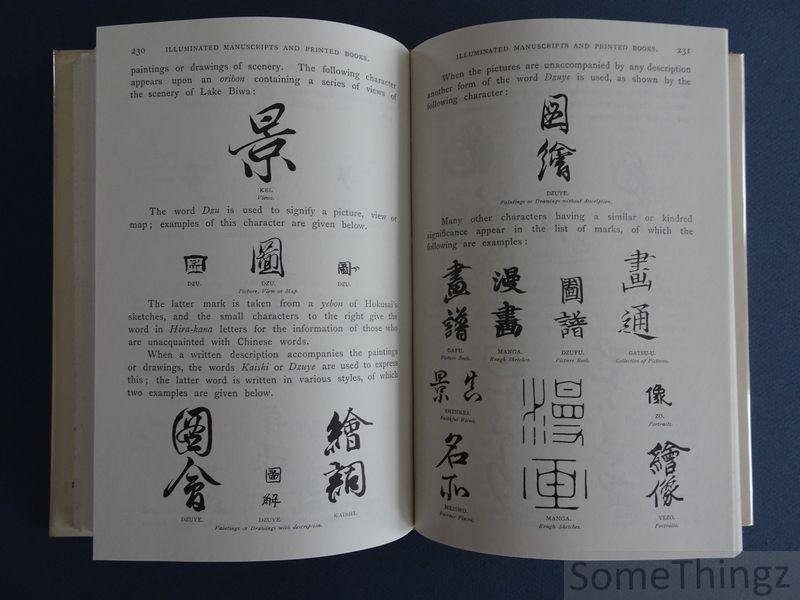 230 ILLUMINATED MANUSCRIPTS AND PRINTED BOOKS.
paintings or drawings of scenery. The following character
appears upon an oribon containing a series of views of
the scenery of Lake Biwa:
景
KEI.
Views.
The word Dzu is used to signify a picture, view or
map; examples of this character are given below.
圖 圖
DZU. DZU. DZU.
Picture, View or Map.
The latter mark is taken from a yehon of Hokusai's
sketches, and the small characters to the right give the
word in Hira-kana letters for the information of those who
are unacquainted with Chinese words.
When a written description accompanies the paintings
or drawings, the words Kaishi or Dzuye are used to express
this; the latter word is written in various styles, of which
two examples are given below.
圖會 圖解 繪詞
DZUYE. DZUYE. KAISHI.
Paintings or Drawings with description.
ILLUMINATED MANUSCRIPTS AND PRINTED BOOKS. 231
When the pictures are unaccompanied by any description
another form of the word Dzuye is used, as shown by the
following character:
圖繪
DZUYE.
Paintings or Drawings without description.
Many other characters having a similar or kindred
significance appear in the list of marks, of which the
following are examples:
畫譜 漫畫 圖譜 畫通
GAFU. MANGA. DZUFU. GATSU-U.
Picture Book. Rough Sketches. Picture Book. Collection of Pictures.
真景 漫画 像
SHINKEI. ZO.
Faithful Views. Portraits.
名所 繪像
MEISHO. MANGA. YEZO.
Famous Places. Rough Sketches. Portraits.
SomeThingz